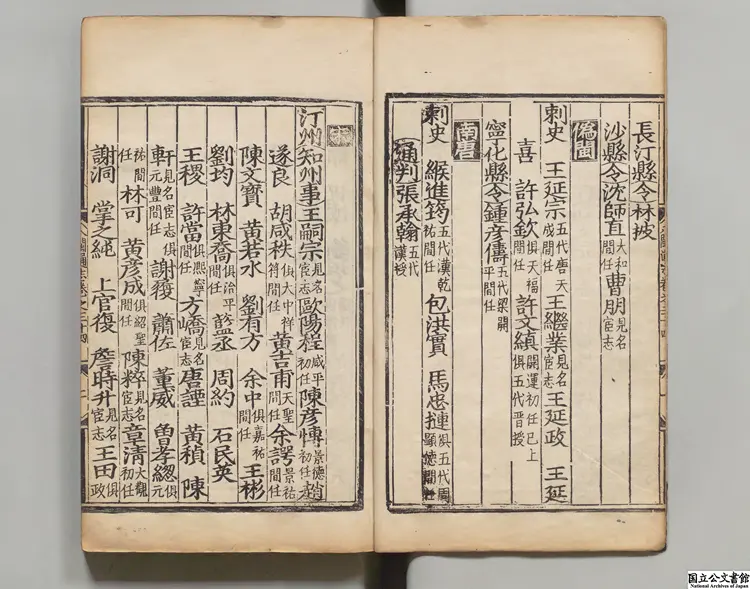 長汀縣令林披
沙縣令沈師直大和間任曹朋見名宦志
僞閩
刺史 王延宗五代唐天成間任王繼業見名宦志王延政 王延
喜 許弘欽俱天福間任許文縝開運初任已上俱五代晉授
寧化縣令鍾彦儔五代梁開平間任
南唐
刺史 緱進筠五代漢乾祐間任包洪實 馬忠連俱五代周顯德間任
通判張承翰五代漢授
宋
汀州知州事王嗣宗見名宦志歐陽程咸平間任陳彦愽景德初任趙
遂良 胡咸秩俱大中祥符間任黄吉甫天聖間任余諤景祐間任
陳文寳 黄若水 劉有方 余中俱嘉祐間任王彬
劉均 林東喬俱治平間任 丞 周約 石民英
王稷 許當俱熈寧間任方嶠見名宦志唐諲 黄稹 陳
軒見名宦志俱元豐間任謝稷 蕭佐 董威 曽孝緫俱元
祐間任林可 黄彦成俱紹聖間任陳粹見名宦志章清大觀初任
謝洞 掌之純 上官復 詹時升見名宦志王田俱政
閩通志卷之三十四
国立公文書館
National Archives of Japan